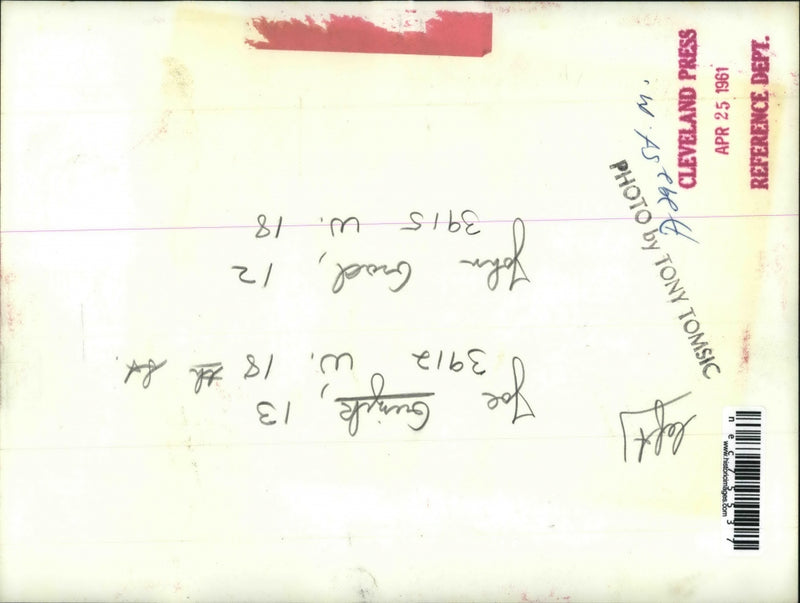 left
Joe
, 13
3912 W. 18 th St.
John
, 12
3915 W. 18
PHOTO by TONY TOMSIC
CLEVELAND PRESS
APR 25 1961
REFERENCE DEPT.
nec75537
www.historicimages.com